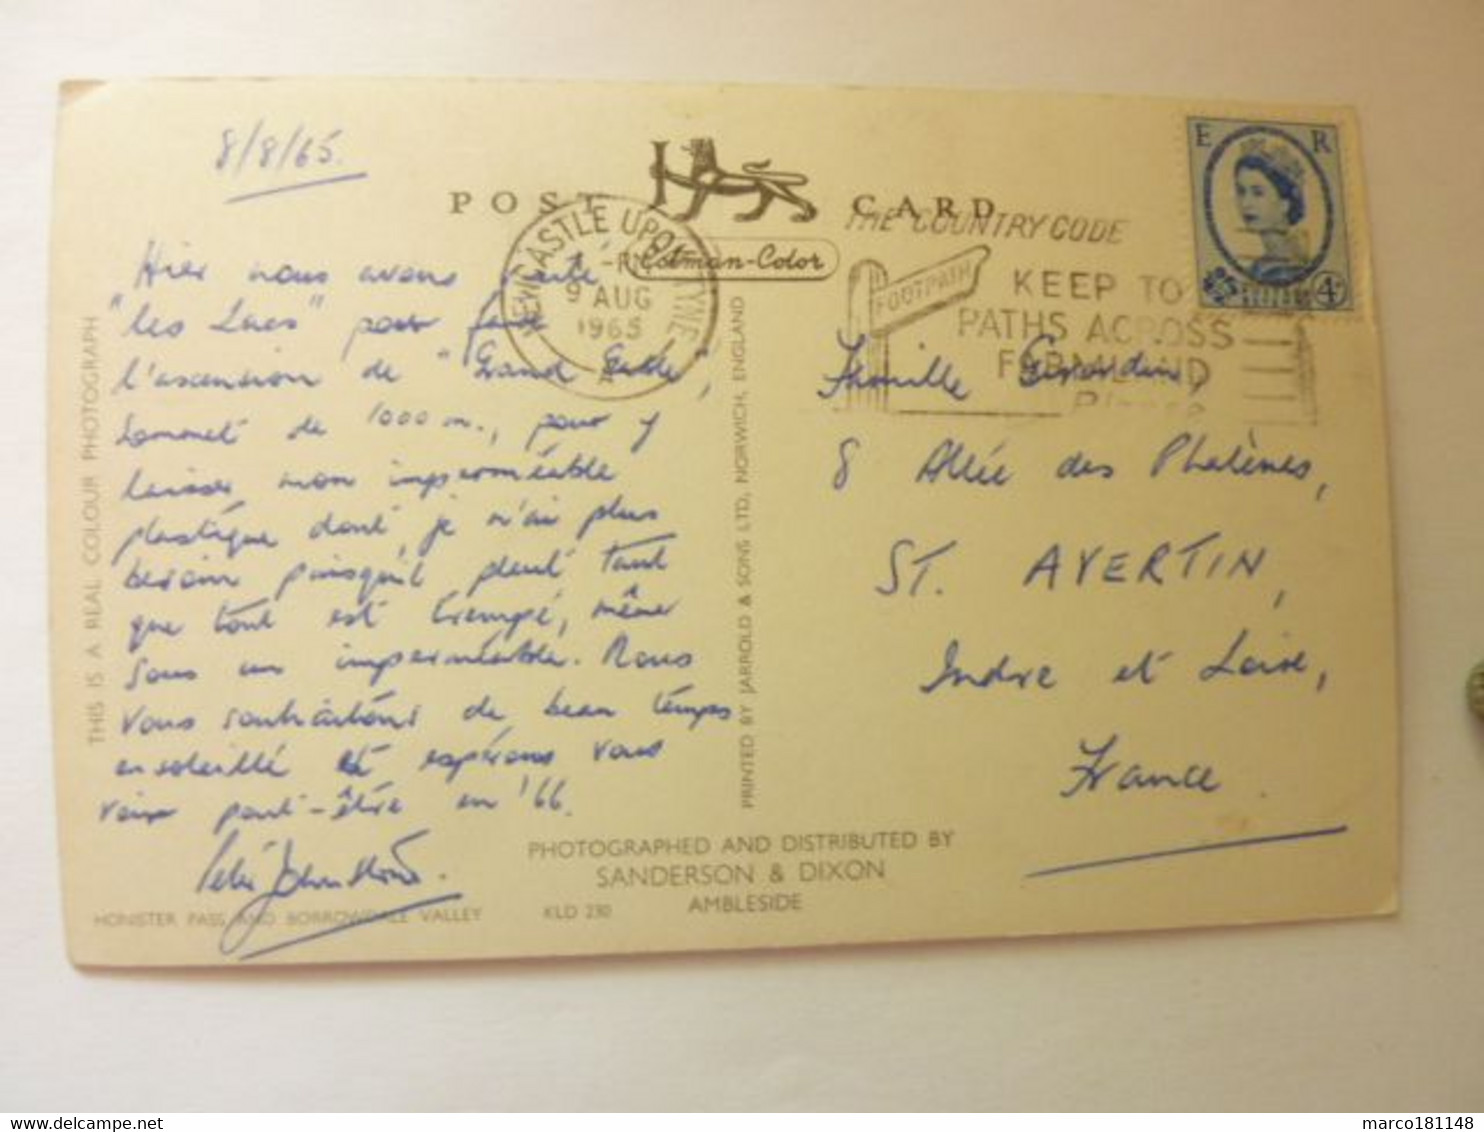 8/8/65.
POST CARD
Cotman-Color
NEWCASTLE UPON TYNE
-PM
9 AUG
1965
A
THE COUNTRY CODE
FOOTPATH
KEEP TO
PATHS ACROSS
FARMLAND
Please
E R
4D
Hier nous avons visité
"les Lacs" pour faire
l'ascension de "Grand Gable",
sommet de 1000 m., pour y
laisser mon imperméable
plastique dont je n'ai plus
besoin puisqu'il pleut tant
que tout est trempé, même
sous un imperméable. Nous
vous souhaitons de beau temps
ensoleillé et espérons vous
voir peut-être en '66.
Peter Johnstone.
Famille Girardin,
8 Allée des Phalènes,
ST. AVERTIN,
Indre et Loire,
France.
THIS IS A REAL COLOUR PHOTOGRAPH
PRINTED BY JARROLD & SONS LTD, NORWICH, ENGLAND
PHOTOGRAPHED AND DISTRIBUTED BY
SANDERSON & DIXON
AMBLESIDE
HONISTER PASS AND BORROWDALE VALLEY KLD 230
marco181148